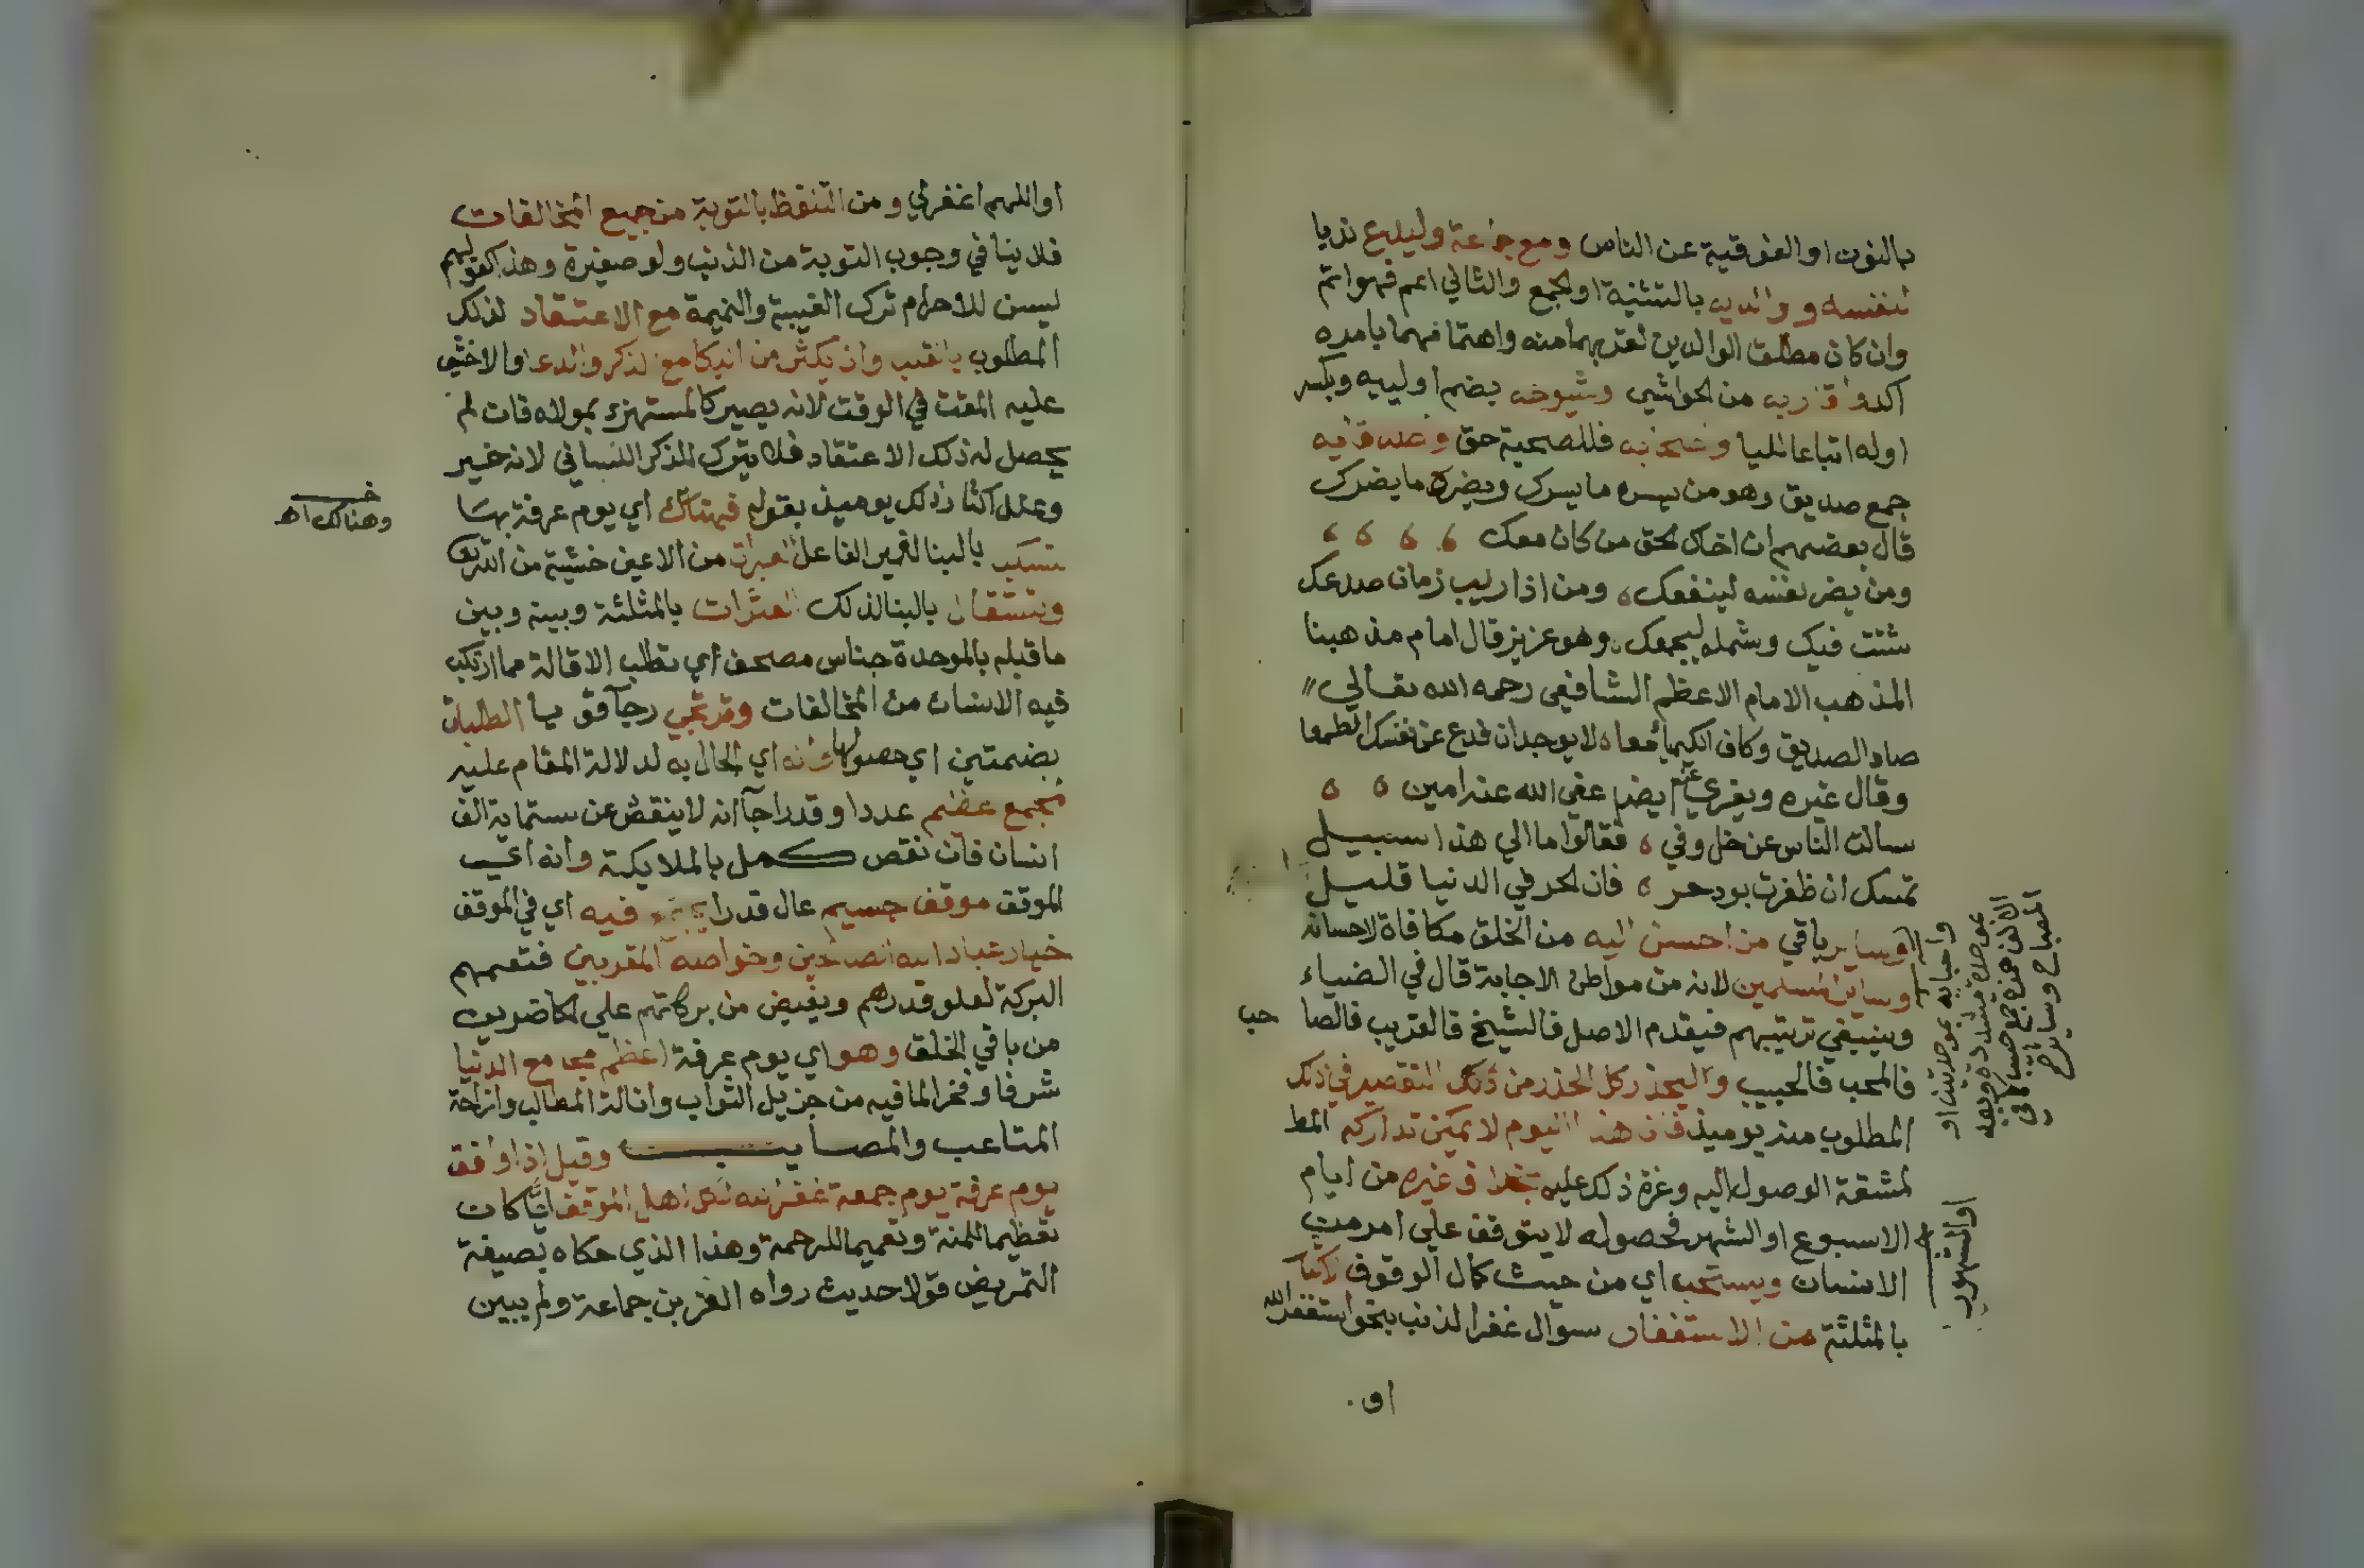 بالنون او الفوقية عن الناس ومع جماعة وليدع ندبا
لنفسه ووالديه بالتثنية او الجمع والثاني اعم فهو اتم
وان كان مطلق الوالدين لقربهما منه واهتمامهما بامره
اكد واقاربه من الحواشي وشيوخه بضم اوليه وبكسر
اوله اتباعا لليا وصحابه فللصحبة حق وصداقايه
جمع صديق وهو من يسره ما يسرك ويضره ما يضرك
قال بعضهم ان اخاك الحق من كان معك
ومن يضر نفسه لينفعك ومن اذا ريب زمان صدعك
شتت فيك وشمله ليجمعك وهو عزيز قال امام مذهبنا
المذهب الامام الاعظم الشافعي رحمه الله تعالي
صاد الصديق وكاف الكيمياء معا لا يوجدان فدع عن نفسك الطمعا
وقال غيره ويعزي عنه ايضا عفي الله عنه امين
سالت الناس عن خل وفي فقالوا ما الي هذا سبيل
تمسك ان ظفرت بود حر فان الحر في الدنيا قليل
وساير باقي من احسن اليه من الخلق مكافاة لاحسانه
وساير المسلمين لانه من مواطن الاجابة قال في الضياء
وينبغي ترتيبهم فيقدم الاصل فالشيخ فالقريب فالصا حب
فالمحب فالحبيب واليحذر كل الحذر من ذلك التقصير في ذلك
المطلوب منه يوميذ فان هذا اليوم لا يمكن تداركه
لمشقة الوصول اليه وعزة ذلك عليه بخلاف غيره من ايام
الاسبوع او الشهر فحصوله لا يتوقف علي امر من
الانسان ويستحب اي من حيث كمال الوقوف الاكثار
بالمثلثة من الاستغفار سوال غفر الذنب بنحو استغفر الله
او
واحبابه بموحدتين او
بموحدة مشددة وبعد
الالف همزة جمع حبيب كما في
المصباح وساير
او الشهور
او اللهم اغفر لي ومن التلفظ بالتوبة من جميع المخالفات
فلا ينافي وجوب التوبة من الذنب ولو صغيرة وهذا كقولهم
ليسن للاحرام ترك الغيبة والنميمة مع الاعتقاد لذلك
المطلوب بالقلب وان يكثر من البكا مع الذكر والدعا والا خشي
عليه المقت في الوقت لانه يصير كالمستهزء بمولاه فان لم
يحصل له ذلك الاعتقاد فلا يترك الذكر اللساني لانه خير
وعلل اكثار ذلك يوميذ بقوله فهناك اي يوم عرفة بها
تسكب بالبنا لغير الفاعل العبرات من الاعين خشية من الله تع
وتستقال بالبنا لذلك العثرات بالمثلثة وبينه وبين
ما قبله بالموحدة جناس مصحف اي تطلب الاقالة مما ارتكب
فيه الانسان من المخالفات وترتجي رجآ قويا الطلبات
بضمتين اي حصولها وانه اي الحال به لدلالة المقام عليه
لمجمع عظيم عددا وقدرا جآ انه لا ينقص عن ستماية الف
انسان فان نقص كمل بالملايكة وانه اي
الموقف موقف جسيم عال قدرا يجتمع فيه اي في الموقف
خيار عباد الله الصالحين وخواصه المقربين فتعمهم
البركة لعلو قدرهم ويفيض من بركاتهم علي الحاضرين
من باقي الخلق وهو اي يوم عرفة اعظم مجامع الدنيا
شرفا وفخرا لما فيه من جزيل الثواب وانالة المطالب وازاحة
المتاعب والمصايب وقيل اذا وافق
يوم عرفة يوم جمعة غفر الله لكل اهل الموقف ايا كان
تعظيما للمنة وتعميما للرحمة وهذا الذي حكاه بصيغة
التمريض قولا حديث رواه العز بن جماعة ولم يبين
وهنالك اهـ